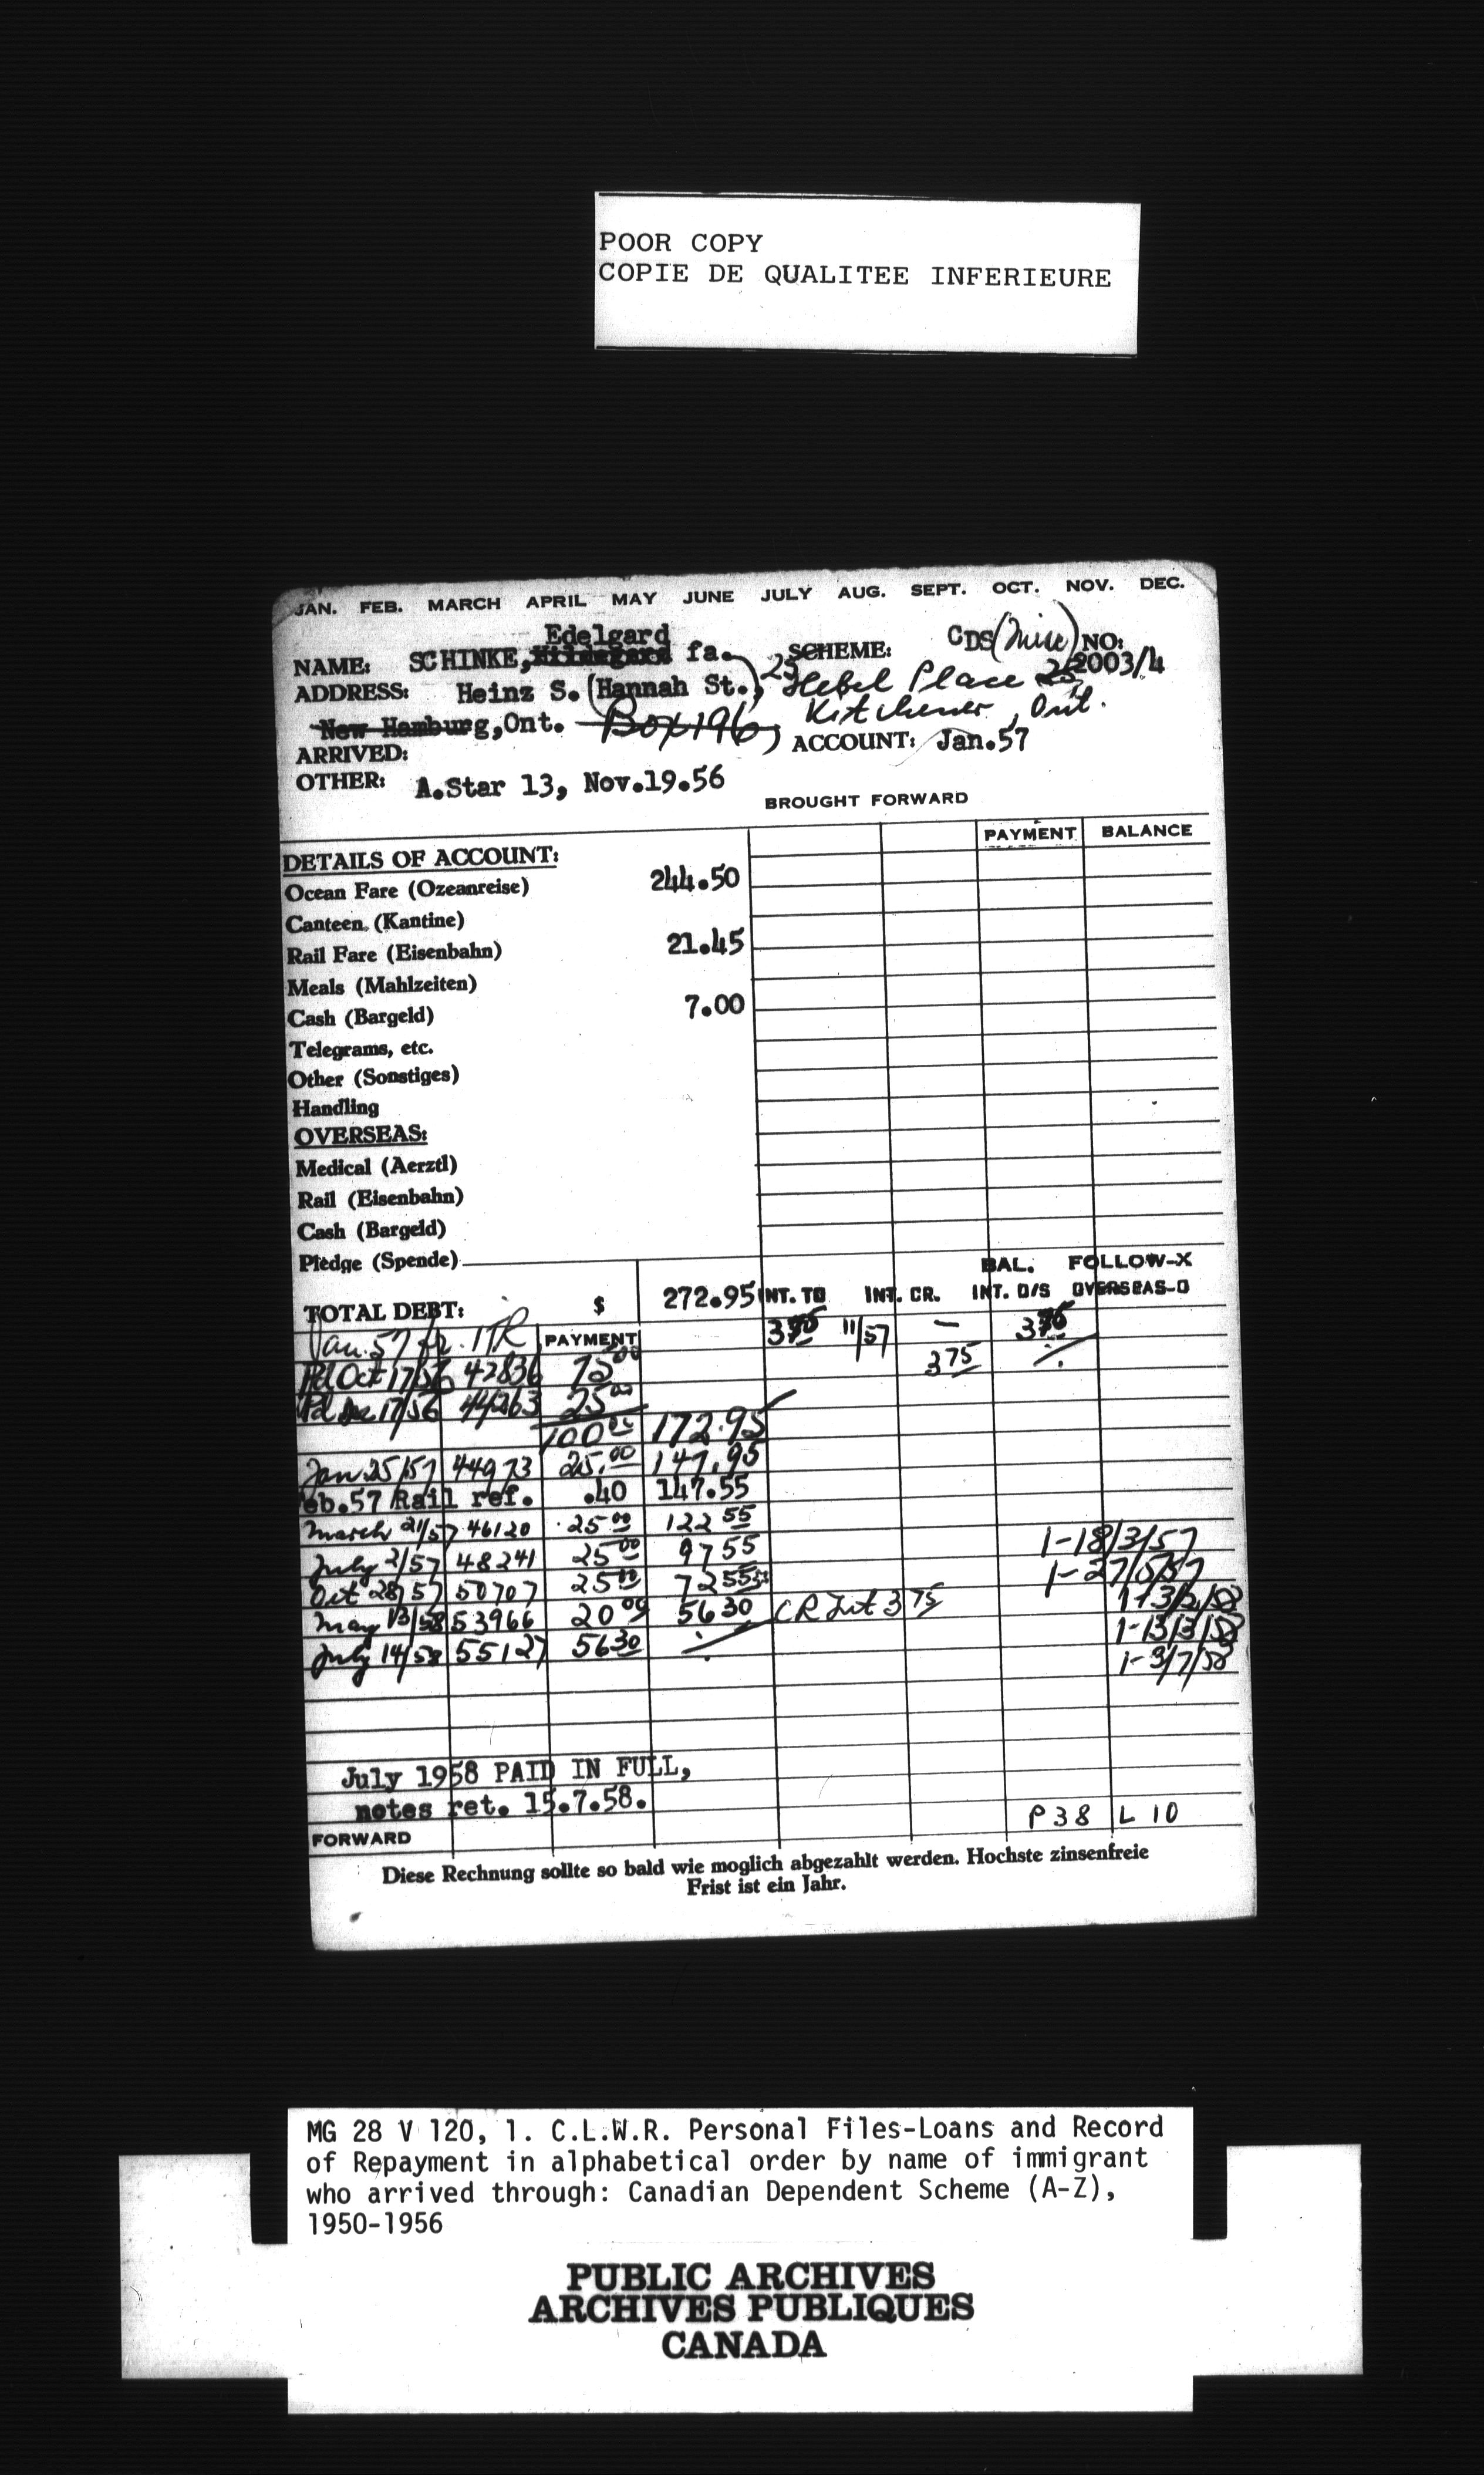 POOR COPY
COPIE DE QUALITEE INFERIEURE
JAN. FEB. MARCH APRIL MAY JUNE JULY AUG. SEPT. OCT. NOV. DEC.
Edelgard
NAME: SCHINKE, Hildegard fa. SCHEME: CDS (Misc) NO:
ADDRESS: Heinz S. (Hannah St.), 25 Hebel Place 2003/4
New Hamburg, Ont. Box 196, Kitchener, Ont.
ARRIVED: ACCOUNT: Jan.57
OTHER: A.Star 13, Nov.19.56
BROUGHT FORWARD
PAYMENT BALANCE
DETAILS OF ACCOUNT:
Ocean Fare (Ozeanreise) 244.50
Canteen. (Kantine)
Rail Fare (Eisenbahn) 21.45
Meals (Mahlzeiten)
Cash (Bargeld) 7.00
Telegrams, etc.
Other (Sonstiges)
Handling
OVERSEAS:
Medical (Aerztl)
Rail (Eisenbahn)
Cash (Bargeld)
Pledge (Spende)
BAL. FOLLOW-X
TOTAL DEBT: $ 272.95 INT. TO INT. CR. INT. O/S OVERSEAS-O
Jan. 57 fr. ITR PAYMENT 11/57 —
Pd Oct 17/56 42836 75 00 3 75 ·/·
Pd Dec 17/56 44263 25 00
100 00 172.95
Jan. 25/57 44973 25.00 147.95
eb.57 Rail ref. .40 147.55
March 21/57 46120 25 00 122 55
July 2/57 48241 25 00 97 55 1-18/3/57
Oct 28/57 50707 25 00 72 55 1-27/5/57
May 13/58 53966 20 00 56 30 CR Int 3 75 1-3/2/58
July 14/58 55127 56 30 ·/· 1-13/3/58
1-3/7/58
July 1958 PAID IN FULL,
notes ret. 15.7.58.
P 38 L 10
FORWARD
Diese Rechnung sollte so bald wie moglich abgezahlt werden. Hochste zinsenfreie
Frist ist ein Jahr.
MG 28 V 120, 1. C.L.W.R. Personal Files-Loans and Record
of Repayment in alphabetical order by name of immigrant
who arrived through: Canadian Dependent Scheme (A-Z),
1950-1956
PUBLIC ARCHIVES
ARCHIVES PUBLIQUES
CANADA